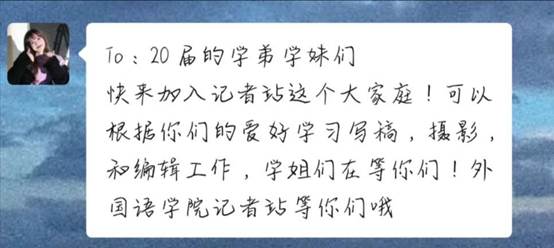 To：20届的学弟学妹们
快来加入记者站这个大家庭！可以
根据你们的爱好学习写稿，摄影，
和编辑工作，学姐们在等你们！外
国语学院记者站等你们哦